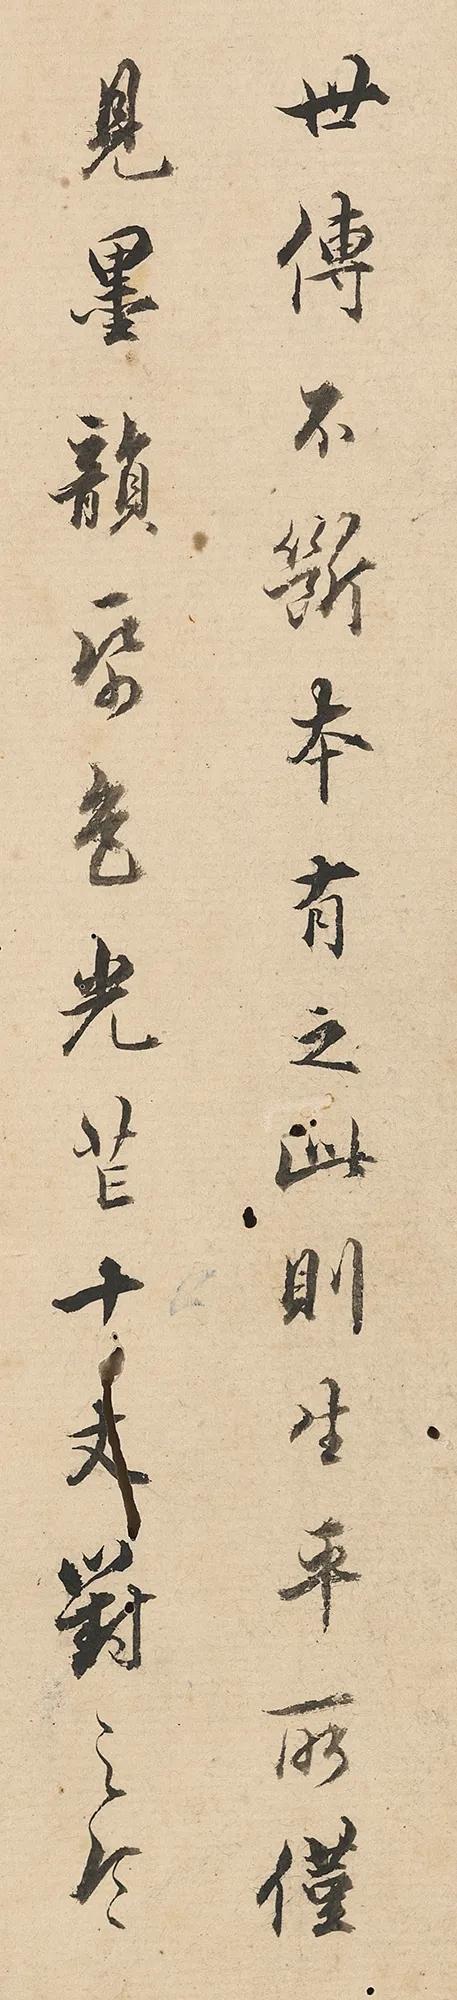 世傳不斷本有之此則生平所僅
見墨韻紙色光芒十丈對之令